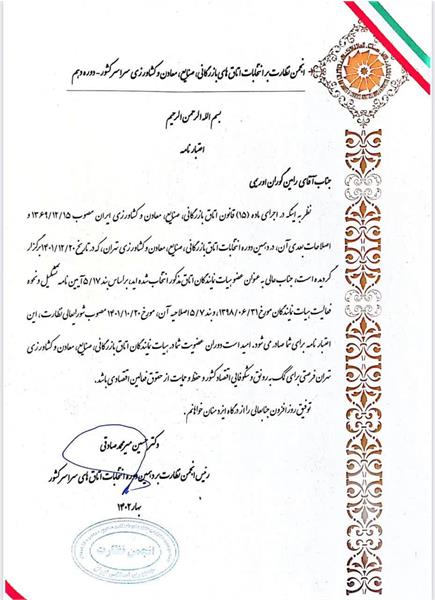 انجمن نظارت بر انتخابات اتاق های بازرگانی، صنایع، معادن و کشاورزی سراسر کشور - دوره دهم
بسم الله الرحمن الرحیم
اعتبار نامه
جناب آقای رامین گوران اوریمی
نظر به اینکه در اجرای ماده (۱۵) قانون اتاق بازرگانی، صنایع، معادن و کشاورزی ایران مصوب ۱۳۶۹/۱۲/۱۵ و
اصلاحات بعدی آن، در دهمین دوره انتخابات اتاق بازرگانی، صنایع، معادن و کشاورزی تهران، که در تاریخ ۱۴۰۱/۱۲/۲۰ برگزار
گردیده است، جناب عالی به عنوان عضو هیات نمایندگان اتاق مذکور انتخاب شده اید، بر اساس بند ۵/۱۷ آیین نامه تشکیل و نحوه
فعالیت هیات نمایندگان مورخ ۱۳۹۸/۰۶/۳۱ و بند ۵/۷ اصلاحیه آن، مورخ ۱۴۰۱/۱۰/۲۰ مصوب شورایعالی نظارت، این
اعتبار نامه برای شما صادر می شود. امید است دوران عضویت شما در هیات نمایندگان اتاق بازرگانی، صنایع، معادن و کشاورزی
تهران فرصتی برای کمک به رونق و شکوفایی اقتصاد کشور و حفظ و حمایت از حقوق فعالین اقتصادی باشد.
توفیق روز افزون جنابعالی را از درگاه ایزد منان خواهانم.
دکتر حسین میرمحمد صادقی
رئیس انجمن نظارت بر دهمین دوره انتخابات اتاق های سراسر کشور
بهار ۱۴۰۲
انجمن نظارت